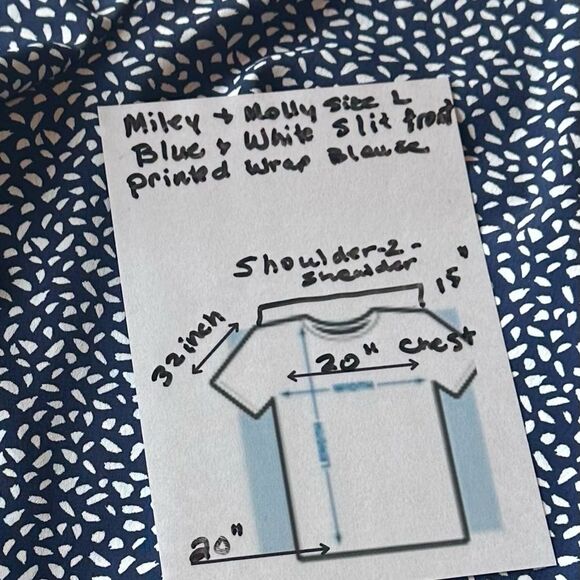 Miley + Molly Size L
Blue & White Slit front
printed Wrap Blouse
Shoulder-2-
shoulder
15"
32inch
20" chest
WIDTH
LENGTH
20"